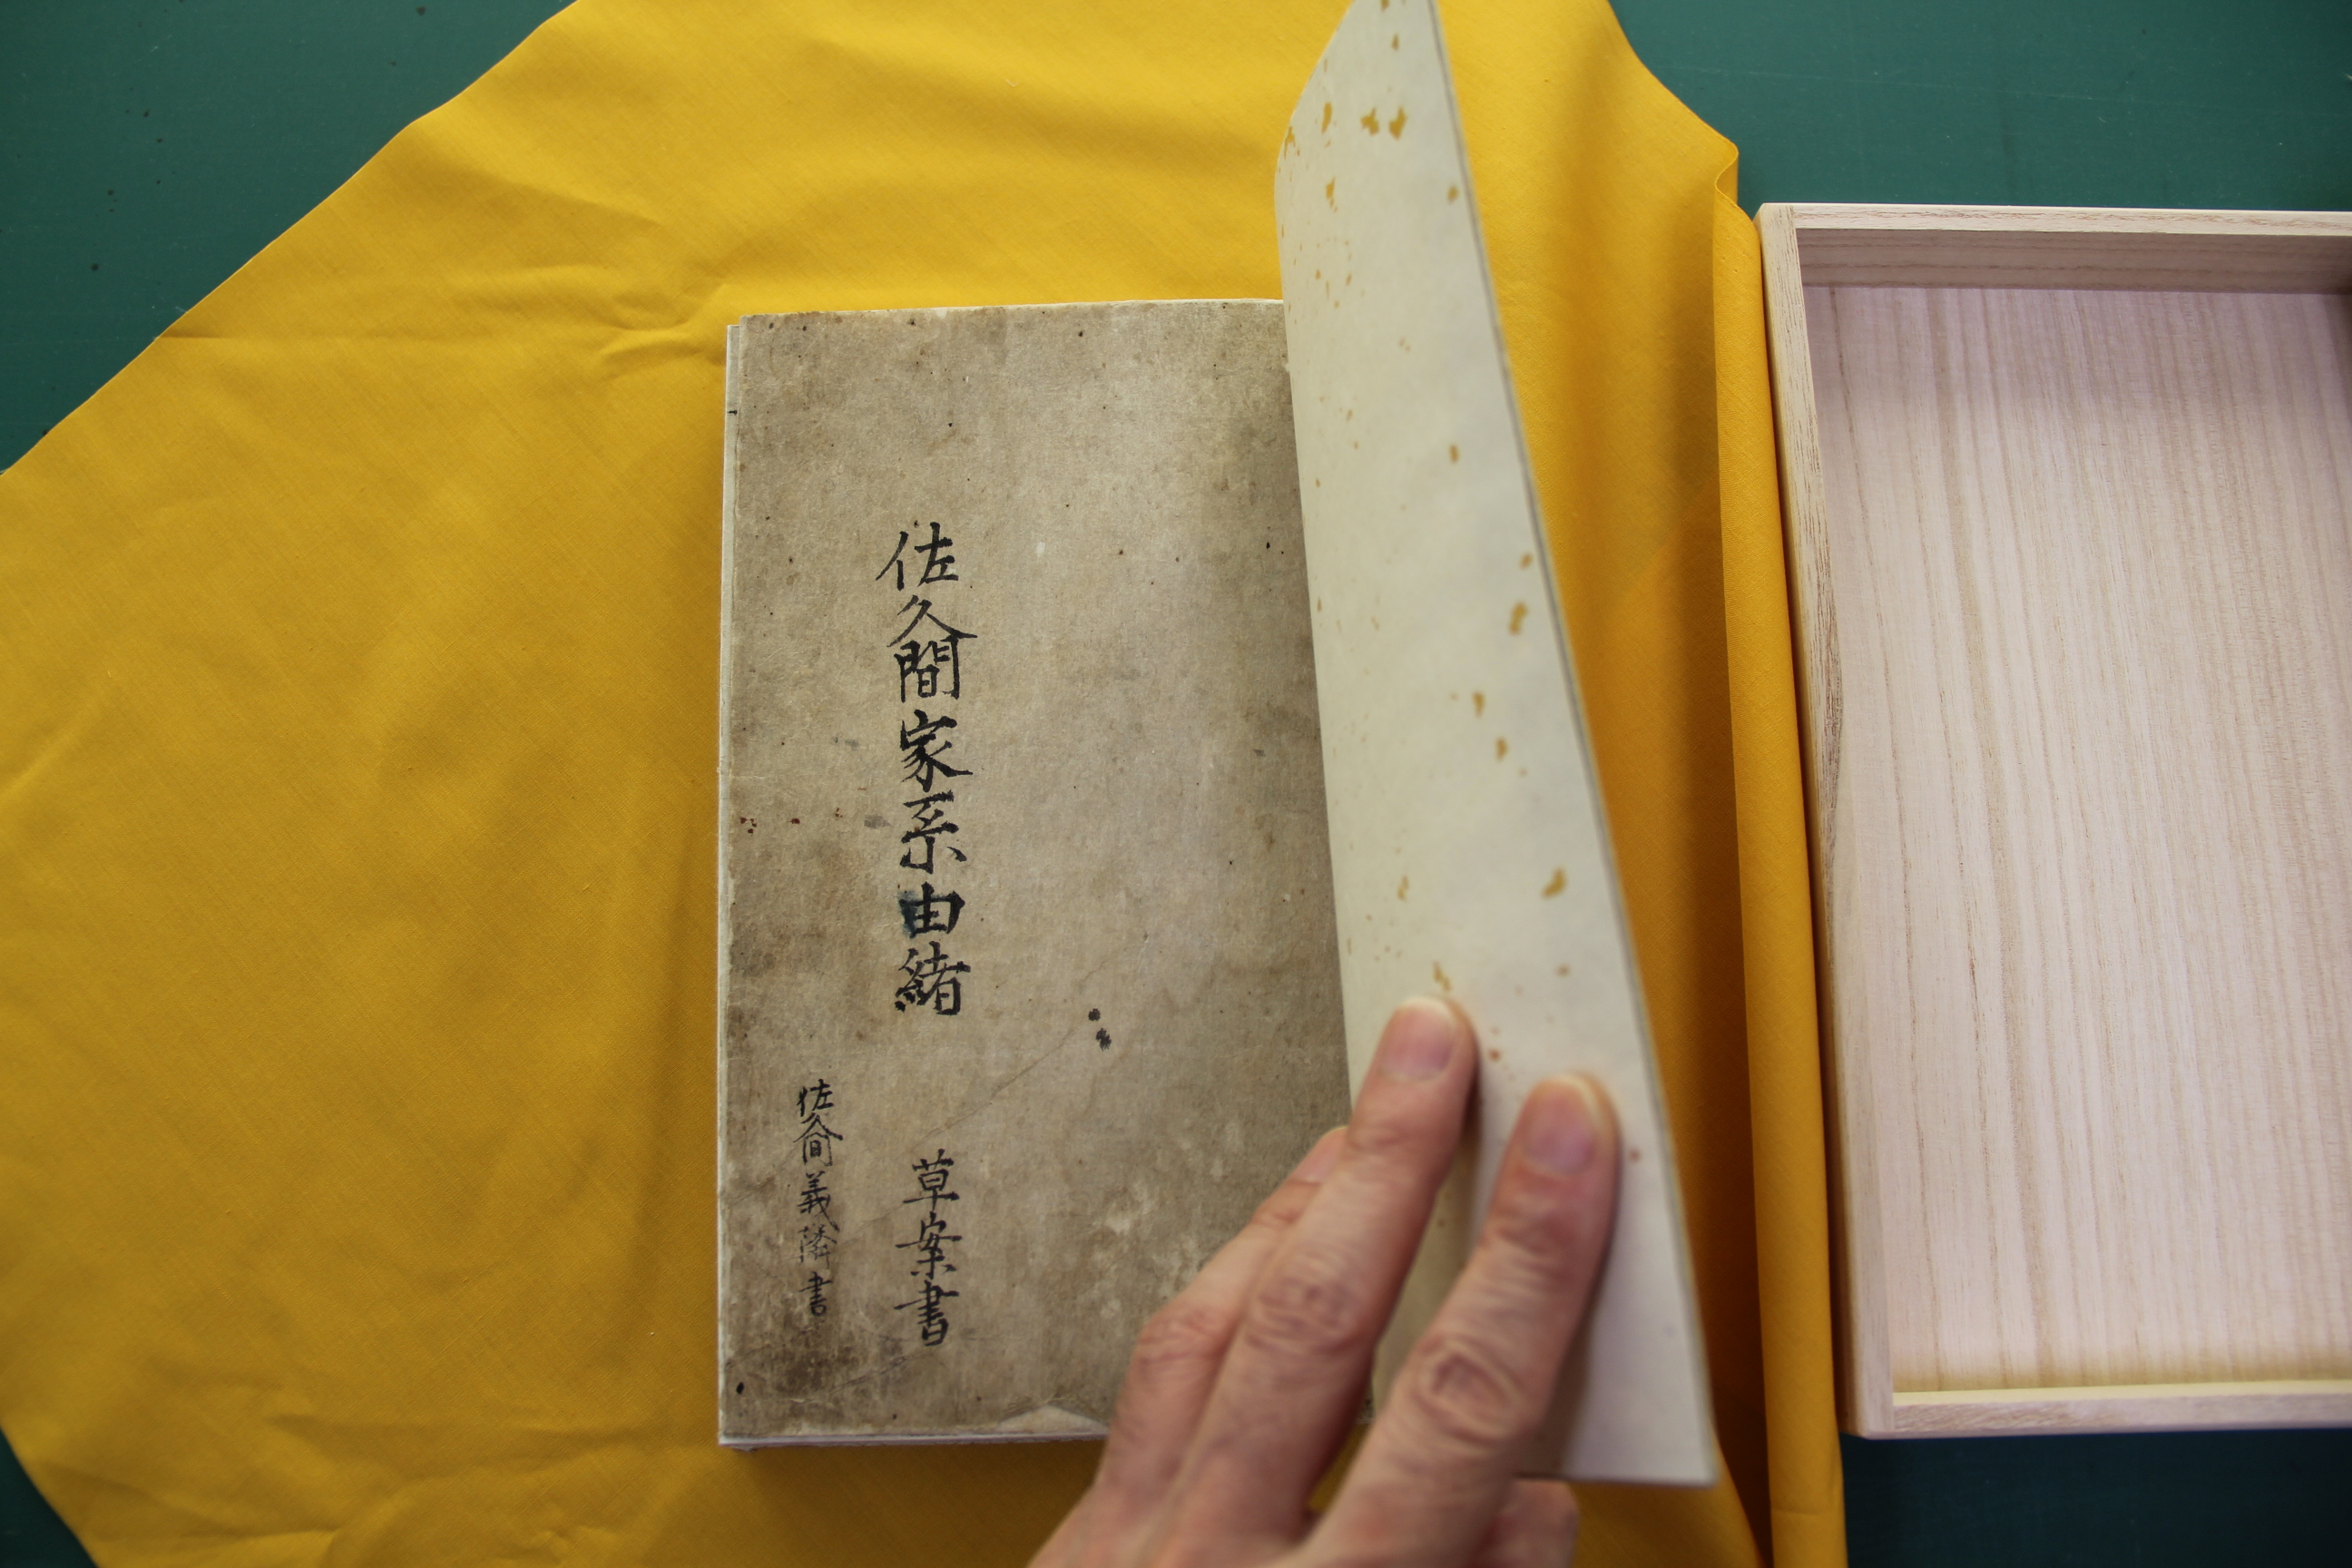 佐久間家系由緒 草案書
佐久間義隣書